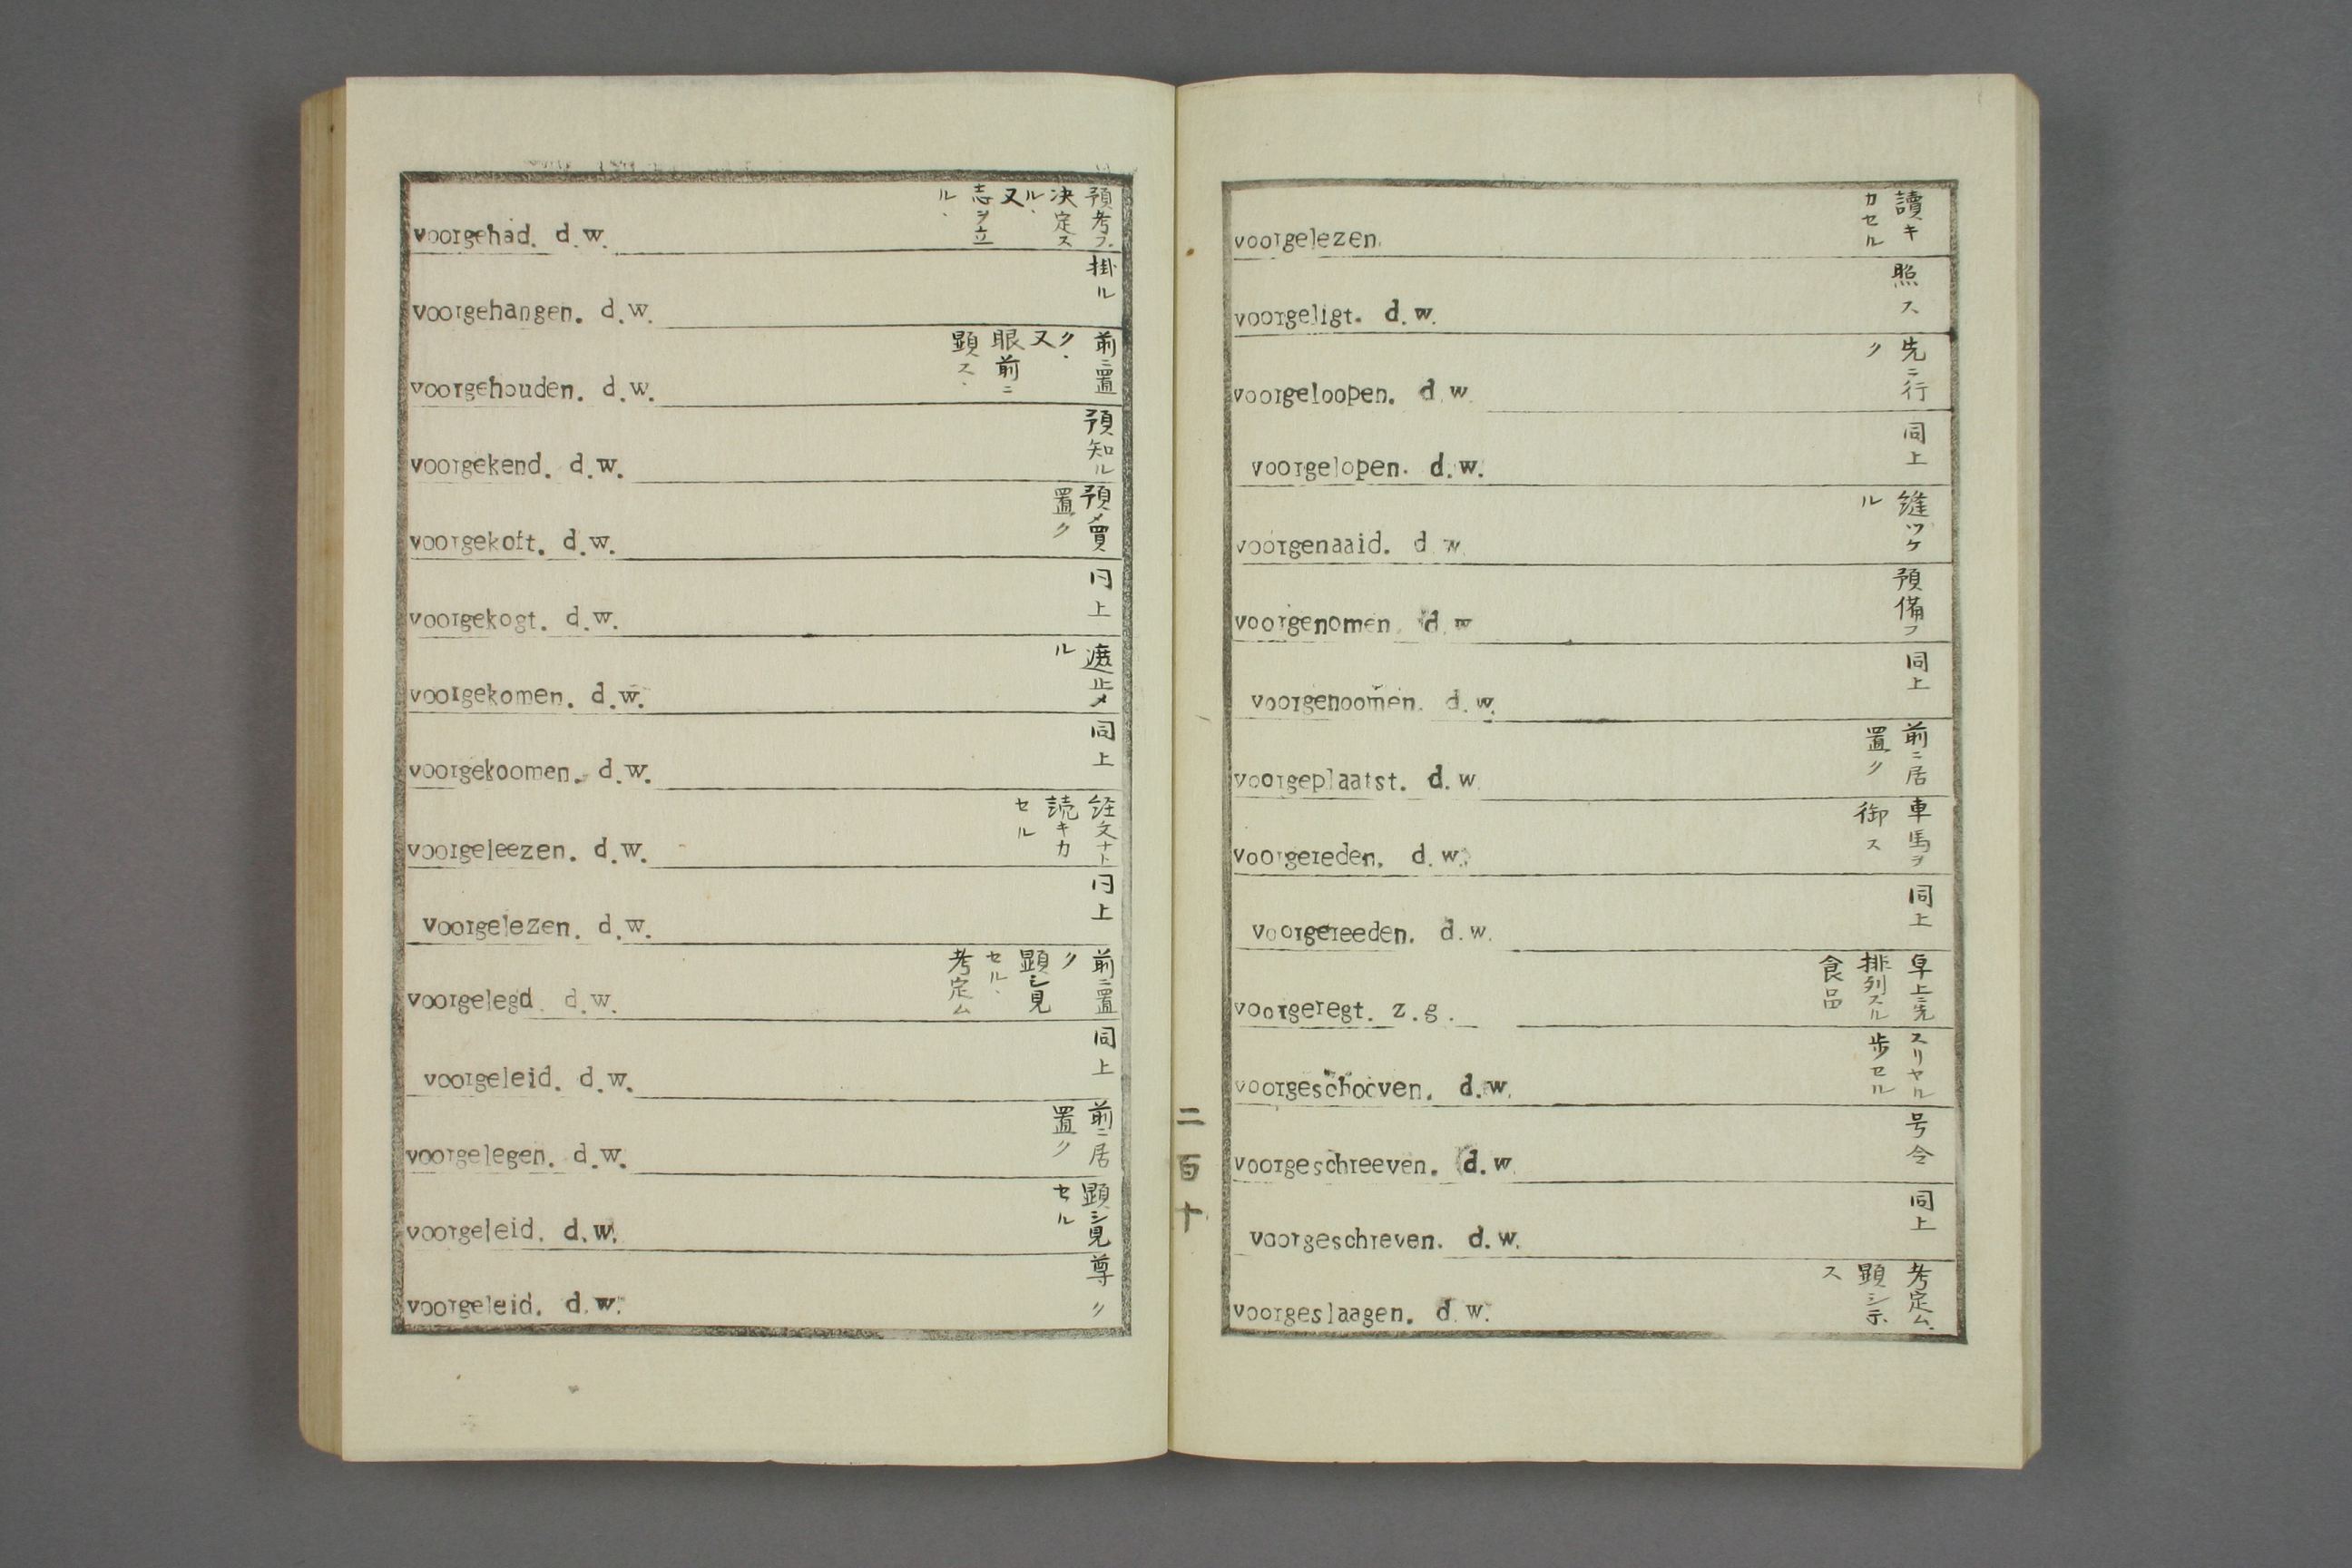 voorgehad. d.w. 預考フ、決定スル、又志ヲ立ル、
voorgehangen. d.w. 掛ル
voorgehouden. d.w. 前ニ置ク、又眼前ニ顕ス、
voorgekend. d.w. 預知ル
voorgekoft. d.w. 預メ買置ク
voorgekogt. d.w. 同上
voorgekomen. d.w. 遮止メル
voorgekoomen. d.w. 同上
voorgeleezen. d.w. 経文ナト読キカセル
voorgelezen. d.w. 同上
voorgelegd. d.w. 前ニ置ク顕シ見セル、考定ム
voorgeleid. d.w. 同上
voorgelegen. d.w. 前ニ居置ク
voorgeleid. d.w. 顕シ見セル
voorgeleid. d.w. 導ク
二百十
voorgelezen. 讀キカセル
voorgeligt. d.w. 照ス
voorgeloopen. d.w 先ニ行ク
voorgelopen. d.w. 同上
voorgenaaid. d.w. 縫ツケル
voorgenomen d.w 預備フ
voorgenoomen. d.w. 同上
voorgeplaatst. d.w 前ニ居置ク
voorgereden. d.w. 車馬ヲ御ス
voorgereeden. d.w. 同上
voorgeregt. z.g. 卓上ニ先排列スル食品
voorgeschooven. d.w. スリヤル歩セル
voorgeschreeven. d.w. 号令
voorgeschreven. d.w. 同上
voorgeslaagen. d.w. 考定ム、顕シ示ス